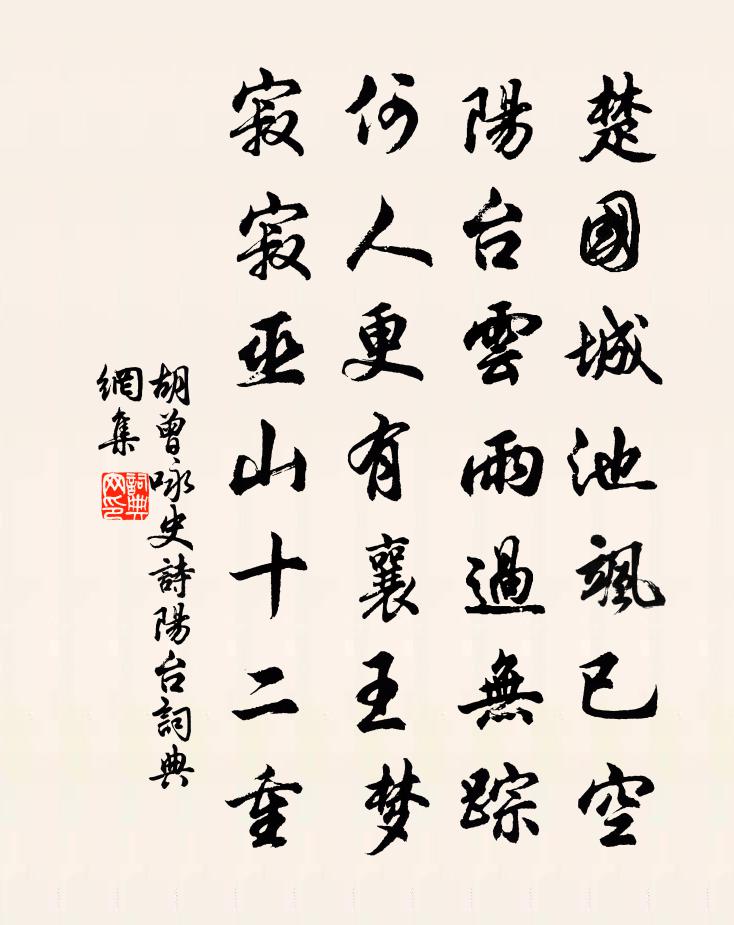 楚國城池颯已空
陽台雲雨過無踪
何人更有襄王梦
寂寂巫山十二重
胡曾咏史詩陽台詞典
網集
詞典
网印